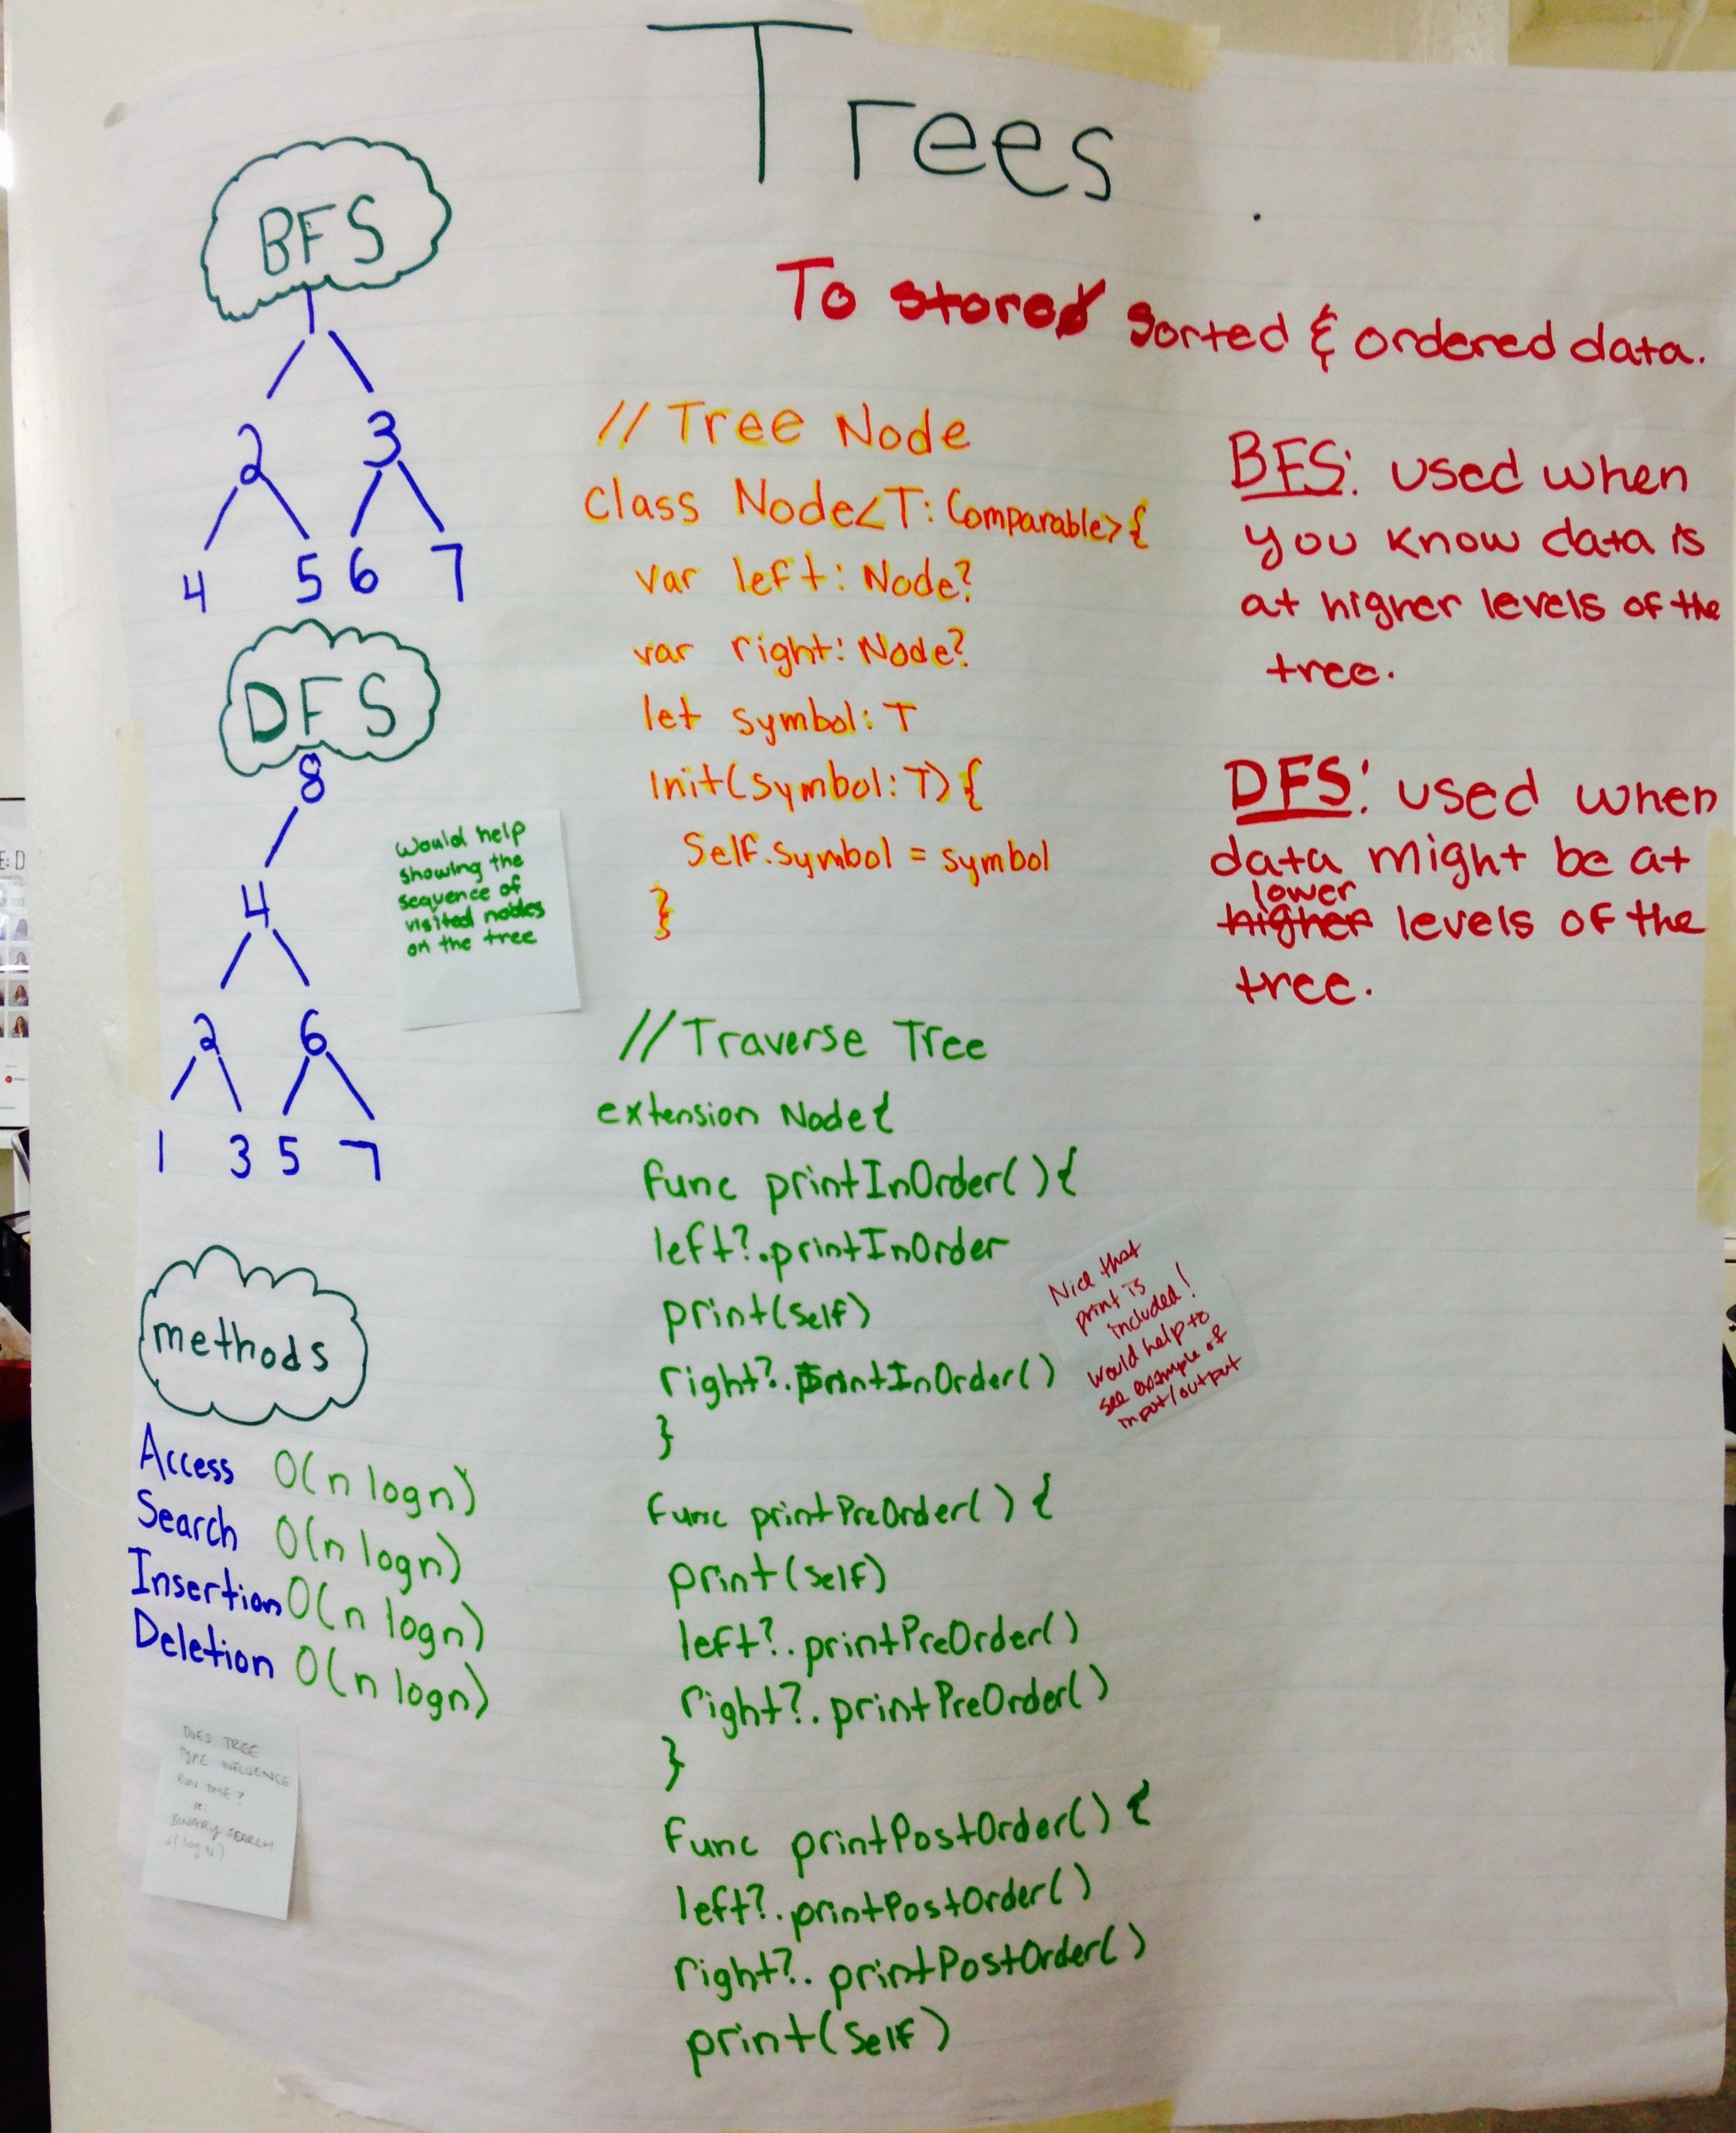 Trees
To store sorted & ordered data.
BFS
1
2 3
4 5 6 7
DFS
8
4
2 6
1 3 5 7
Would help
showing the
sequence of
visited nodes
on the tree
methods
Access O(n logn)
Search O(n logn)
Insertion O(n logn)
Deletion O(n logn)
DOES TREE
TYPE INFLUENCE
RUN TIME?
ie.
BINARY SEARCH
o(log N)
// Tree Node
class Node<T: Comparable>{
var left: Node?
var right: Node?
let symbol: T
Init(symbol: T){
Self.symbol = symbol
}
// Traverse Tree
extension Node{
func printInOrder(){
left?.printInOrder
print(self)
right?.printInOrder()
}
func printPreOrder() {
print(self)
left?.printPreOrder()
right?.printPreOrder()
}
func printPostOrder() {
left?.printPostOrder()
right?.printPostOrder()
print(self)
Nice that
print is
included!
Would help to
see example of
input/output
BFS: used when
you know data is
at higher levels of the
tree.
DFS: used when
data might be at
lower
higher levels of the
tree.